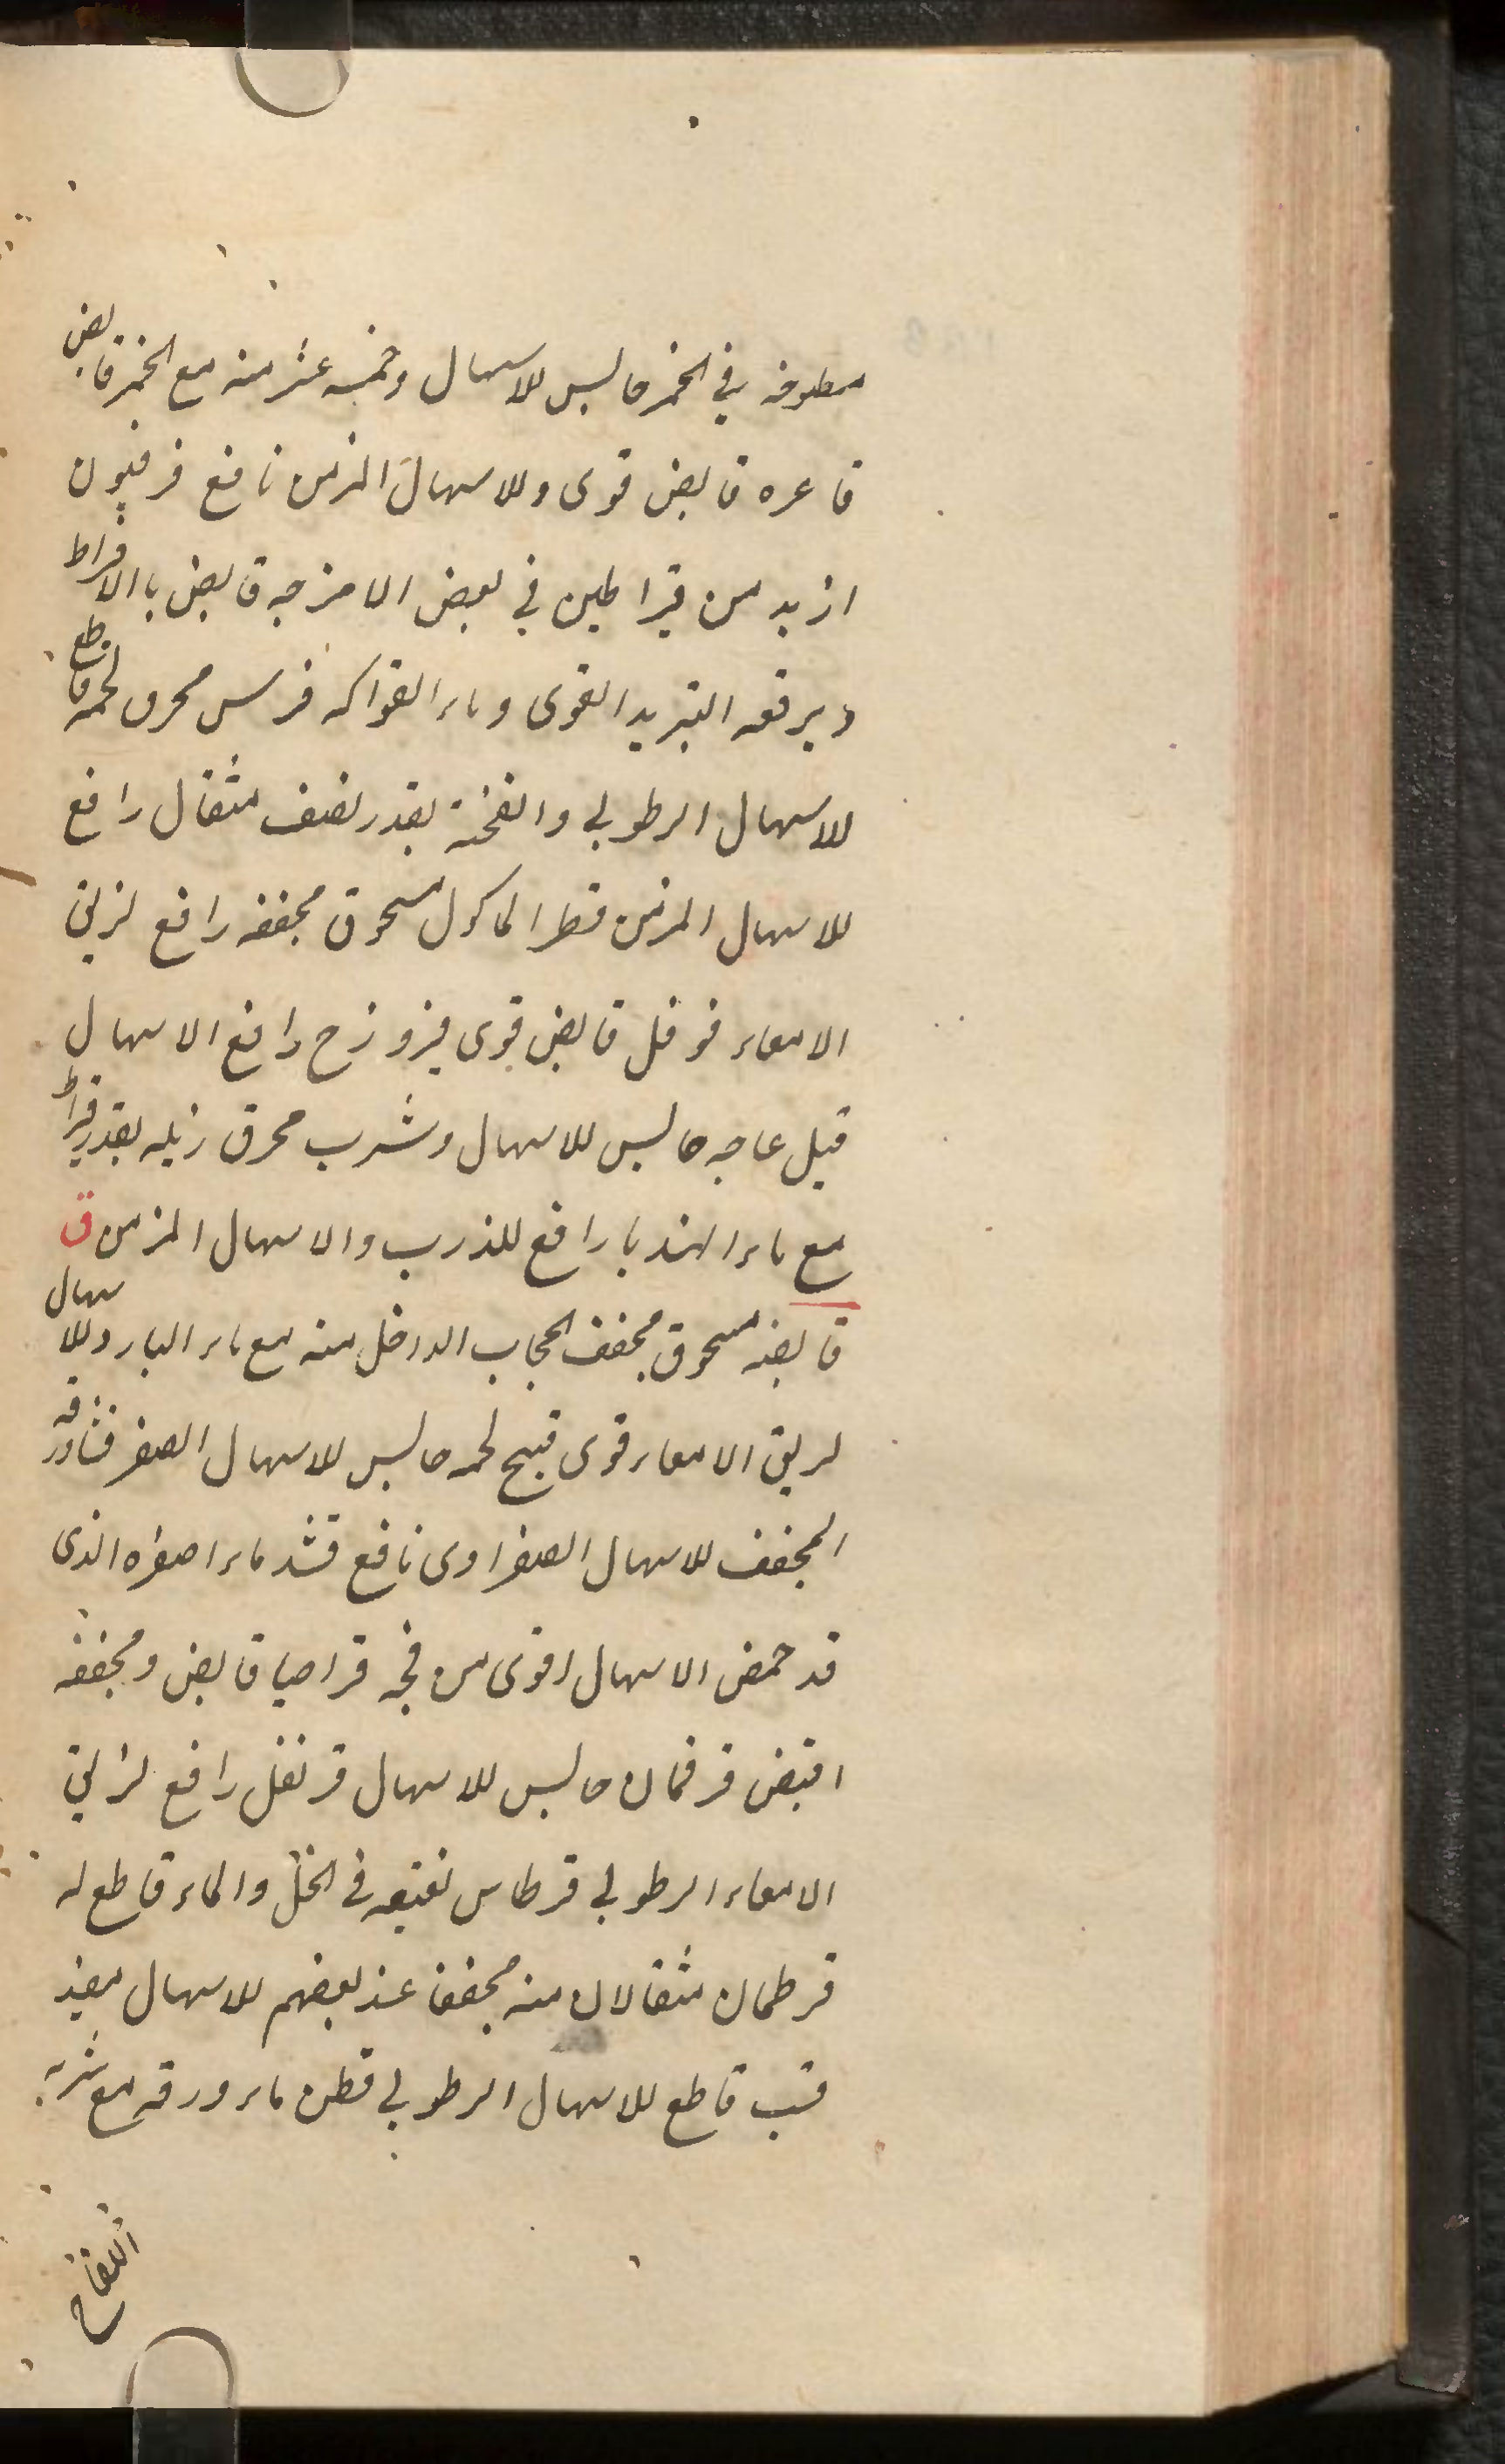 مطبوخه في الخمر حابس للاسهال وخمسه عشر منه مع الخمر قابض
قاعره قابض قوى وللاسهال المزمن نافع فرفيون
ازيد من قيراطين في بعض الامزجه قابض باالافراط
ويرفعه التبريد القوى وماء الفواكه فرس محرق لحمه قاطع
للاسهال الرطوبي وانفخته بقدر نصف مثقال رافع
للاسهال المزمن فطر الماكول مسحوق مجففه رافع لزلق
الامعاء فوفل قابض قوى فيروزج رافع الاسهال
فيل عاجه حابس للاسهال وشرب محرق زبله بقدر قيراط
مع ماء الهندبا رافع للذرب والاسهال المزمن ق
قابضه مسحوق مجفف الحجاب الداخل منه مع ماء البارد للاسهال
لزلق الامعاء قوى قبج لحمه حابس للاسهال الصفر قثا ورقه
المجفف للاسهال الصفراوى نافع قثد ماء اصفره الذى
قد حمض الاسهال اقوى من فجه قراصيا قابض ومجففه
اقبض قرفمان حابس للاسهال قرنفل رافع لزلق
الامعاء الرطوبي قرطاس نقيعه في الخل والماء قاطع له
قرطمان مثقالان منه مجففا عند بعضهم للاسهال مفيد
قسب قاطع للاسهال الرطوبي قطن ماء ورقه مع شربه
التفاح